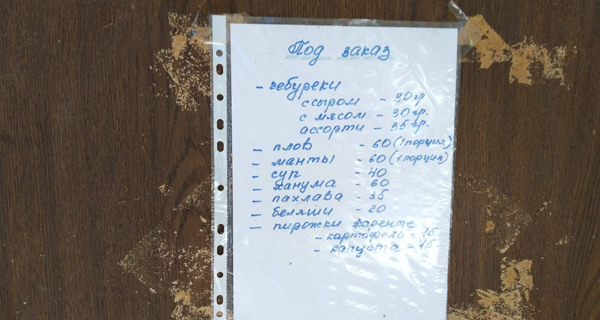 Под заказ
- чебуреки
с сыром - 30 гр
с мясом - 30 гр.
ассорти - 35 гр.
- плов - 60 (1 порция)
- манты - 60 (1 порция)
- суп - 40
- ханума - 60
- пахлава - 35
- беляши - 20
- пирожки жарение
- картофель - 15
- капуста - 15